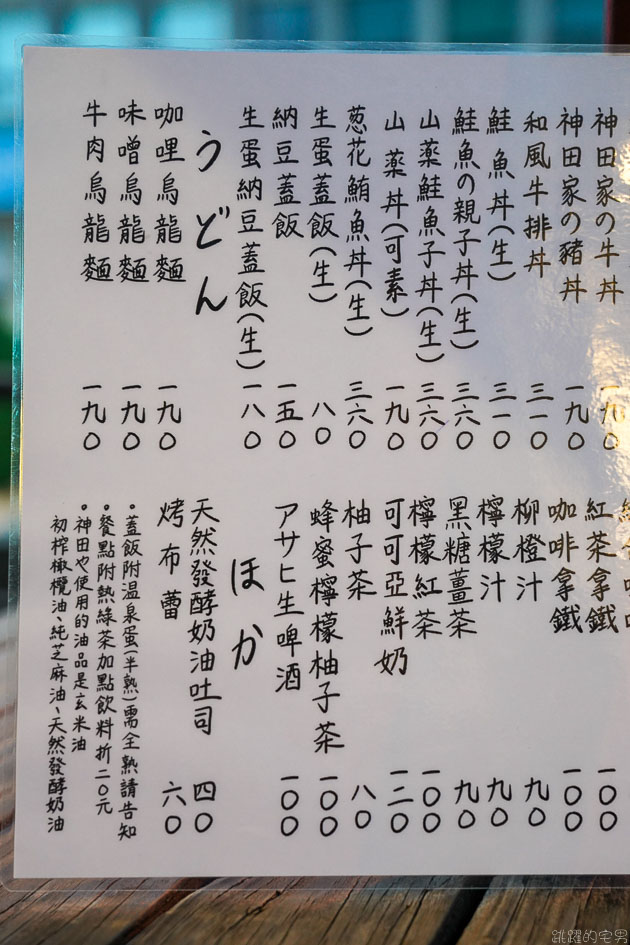 神田家の牛丼 一九〇
神田家の豬丼 一九〇
和風牛排丼 三一〇
鮭魚丼(生) 三一〇
鮭魚の親子丼(生) 三六〇
山藥鮭魚子丼(生) 三六〇
山藥丼(可素) 一九〇
蔥花鮪魚丼(生) 三六〇
生蛋蓋飯(生) 八〇
納豆蓋飯 一五〇
生蛋納豆蓋飯(生) 一八〇
うどん
咖哩烏龍麵 一九〇
味噌烏龍麵 一九〇
牛肉烏龍麵 一九〇
紅茶拿鐵 一〇〇
咖啡拿鐵 一〇〇
柳橙汁 九〇
檸檬汁 九〇
黑糖薑茶 九〇
檸檬紅茶 一〇〇
可可亞鮮奶 一二〇
柚子茶 八〇
蜂蜜檸檬柚子茶 一〇〇
アサヒ生啤酒 一〇〇
ほか
天然發酵奶油吐司 四〇
烤布蕾 六〇
•蓋飯附溫泉蛋(半熟)需全熟請告知
•餐點附熱綠茶加點飲料折二〇元
•神田也使用的油品是玄米油
初榨橄欖油、純芝麻油、天然發酵奶油
跳躍的宅男